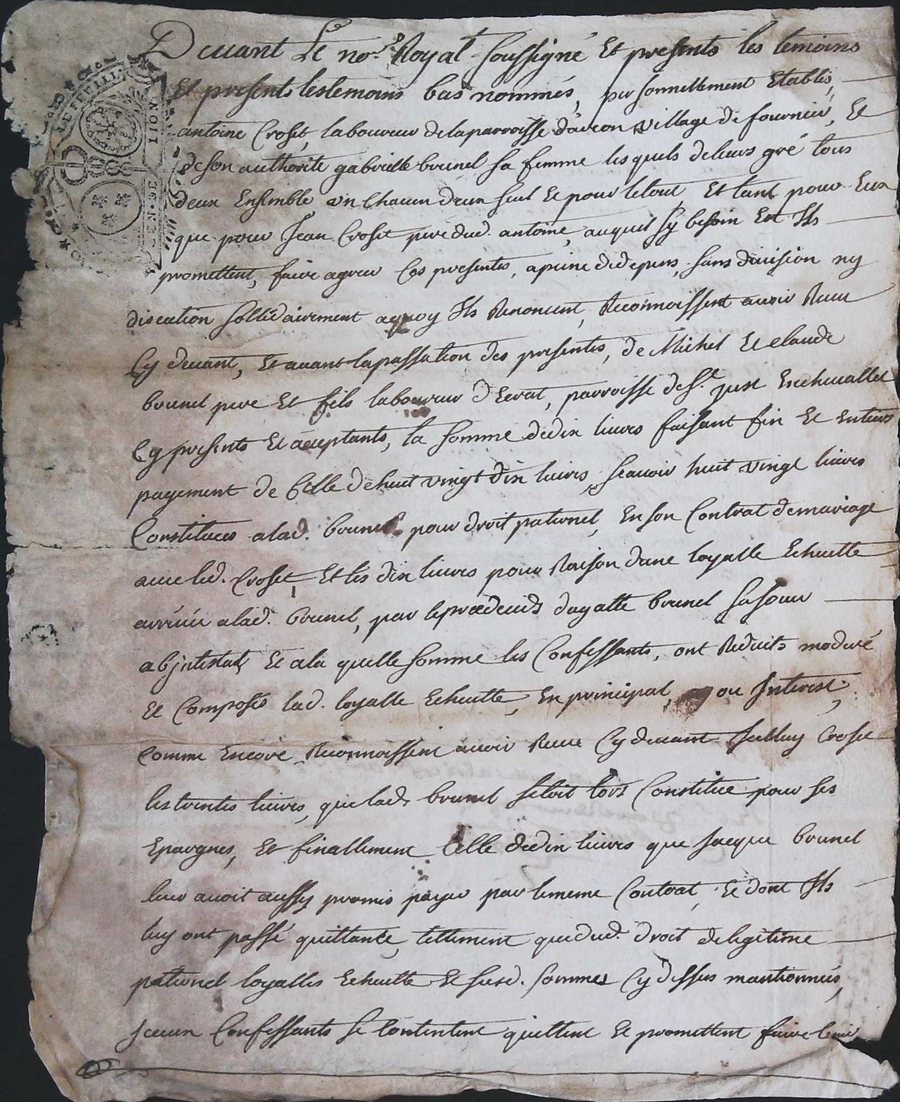 Devant Le nore. Royal Soussigné Et presents les temoins
Et presents les temoins bas nommés, personnellement Etablis,
antoine Croset, laboureur de la parroisse village de fournié, Et
de son authorité gabrielle brunel sa femme lesquels de leurs gré tous
deux Ensemble un Chacun d'eux seul Et pour le tout Et tant pour Eux
que pour Jean Croset pere dud. antoine, auquel sy besoin Est Ils
promettent, faire agreer Ces presentes, a peine de depens, sans division ny
discution sollidairement aquoy Ils Renoncent, Reconnoissent avoir Receu
Cy devant, Et avant la passation des presentes, de Michel Et claude
brunel pere Et fils laboureur parroisse de St. just Enchevallet
Cy presents Et acceptants, la somme de dix livres faisant fin Et Entier
payement de Celle de huit vingt dix livres, scavoir huit vingt livres
Constituees a lad. brunel pour droit paternel, En son Contrat de mariage
avec led. Croset Et les dix livres pour Raison d'une loyalle Echeutte
arrivée a lad. brunel, par le predeceds d'agatte brunel sa soeur
abjntestat, Et a la quelle somme les Confessants, ont Reduits moderé
Et Composé lad. loyalle Echeutte, En principal, ou Interest,
Comme Encore, Reconnoissent avoir Receu Cy devant Croset
les trentes livres, que lad. brunel s'etoit lors Constituée pour ses
Epargnes, Et finallement Celle de dix livres que jacque brunel
leur avoit aussy promis payer par le meme Contrat, Et dont Ils
luy ont passé quittance, tellement que dud. droit de legitime
paternel loyalles Echeutte Et susd. sommes Cy dessus mantionnées,
Confessants se Contentent quittent Et promettent faire tenir